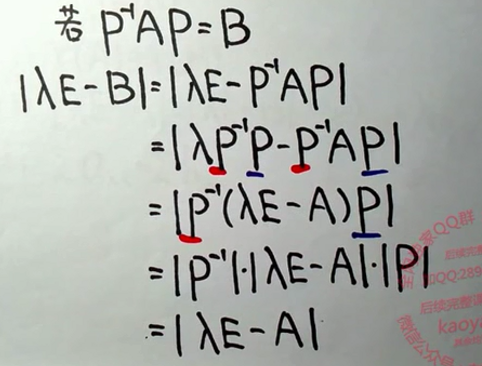 若 P⁻¹AP=B
|λE-B|=|λE-P⁻¹AP|
=|λP⁻¹P-P⁻¹AP|
=|P⁻¹(λE-A)P|
=|P⁻¹|·|λE-A|·|P|
=|λE-A|
QQ群
后续完
QQ:289
后续完整课
kaoy
微信公众号